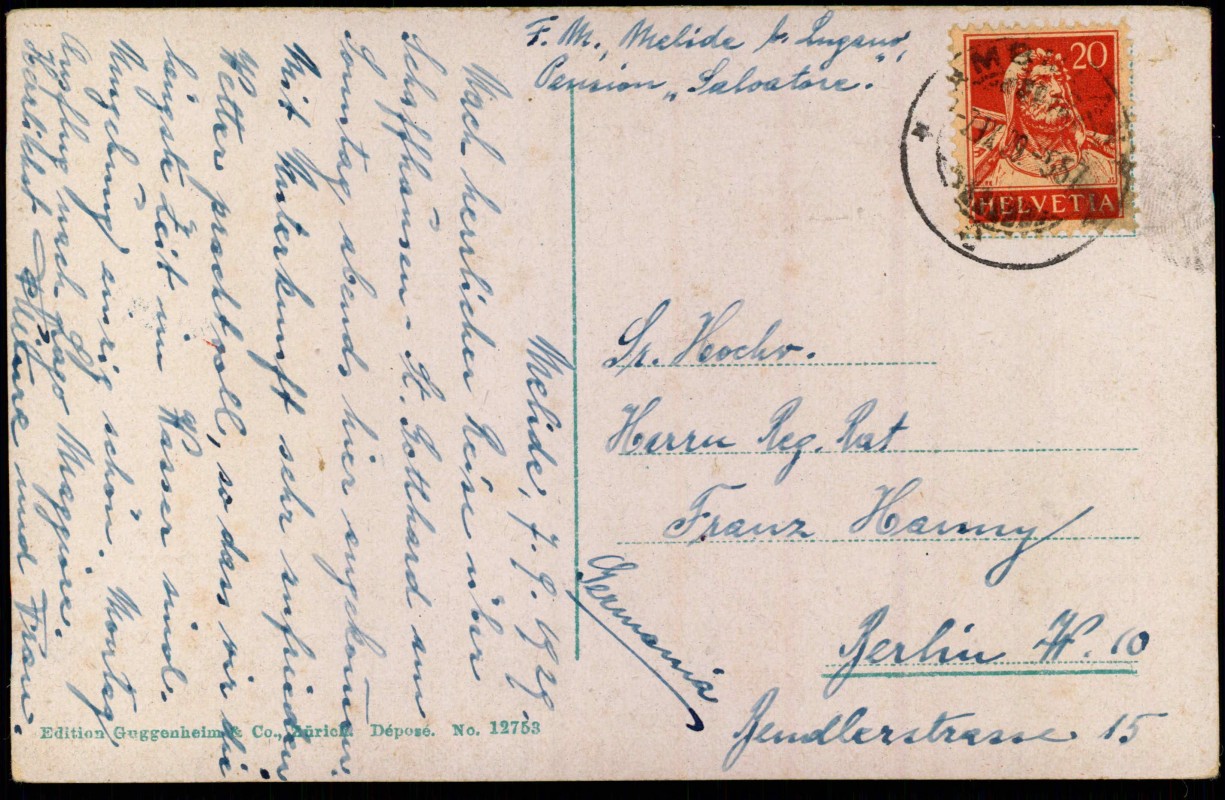 F. M., Melide b. Lugano,
Pension „Salvatore“.
20
HELVETIA
Melide, 7. 9. 1929.
Nach herrlicher Reise über
Schaffhausen - St. Gotthard am
Sonntag abends hier angekommen.
Mit Unterkunft sehr zufrieden
Wetter prachtvoll, so dass wir die
längste Zeit im Wasser sind.
Umgebung einzig schön. Montag
Ausflug nach Lago Maggiore.
Herzlichst und Frau.
Sr. Hochw.
Herrn Reg. Rat
Franz Hanny
Germania
Berlin W. 10
Bendlerstrasse 15
Edition Guggenheim & Co., Zürich. Déposé. No. 12753